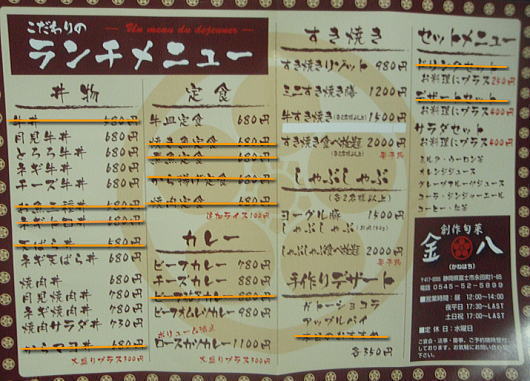 こだわりの
Un menu du dejeuner
ランチメニュー
丼物
牛丼 580円
月見牛丼 680円
とろろ牛丼 680円
ネギ牛丼 680円
チーズ牛丼 680円
680円
680円
680円
ネギそぼろ丼 680円
焼肉丼 680円
月見焼肉丼 780円
ネギ焼肉丼 780円
焼肉サラダ丼 730円
680円
大盛りプラス300円
定食
牛皿定食 680円
焼き魚定食 680円
煮魚定食 680円
から揚げ定食 680円
焼肉定食 680円
追加ライス100円
カレー
ビーフカレー 780円
チーズカレー 880円
ビーフオムレツカレー 980円
ボリューム満点
ロースカツカレー 1100円
大盛りプラス300円
すき焼き
すき焼きリゾット 980円
ミニすき焼き膳 1200円
牛すき焼き 1500円
すき焼き食べ放題 2000円
しゃぶしゃぶ
(各2名様以上)
ヨーグル豚 1500円
しゃぶしゃぶ
しゃぶしゃぶ食べ放題 2000円
手作りデザート
ガトーショコラ
アップルパイ
各350円
セットメニュー
ドリンクセット
お料理にプラス250円
デザートセット
お料理にプラス400円
サラダセット
お料理にプラス400円
ミルク・ウーロン茶
オレンジジュース
グレープフルーツジュース
コーラ・ジンジャーエール
コーヒー・紅茶
創作旬菜
金八
(かねはち)
静岡県富士市永田町1-85
電話 0545-52-5899
■営業時間:昼 12:00〜14:00
夜平日 17:30〜LAST
土日祝 17:00〜LAST
■定休日:水曜日